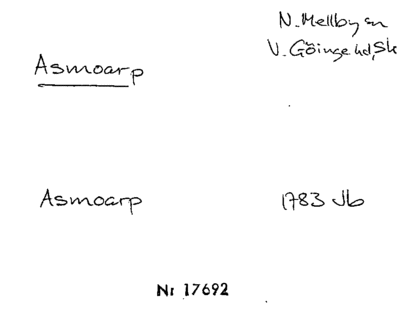 N. Mellby sn
V. Göinge hd, Sk
Asmoarp
Asmoarp 1783 Jb
Nr 17692